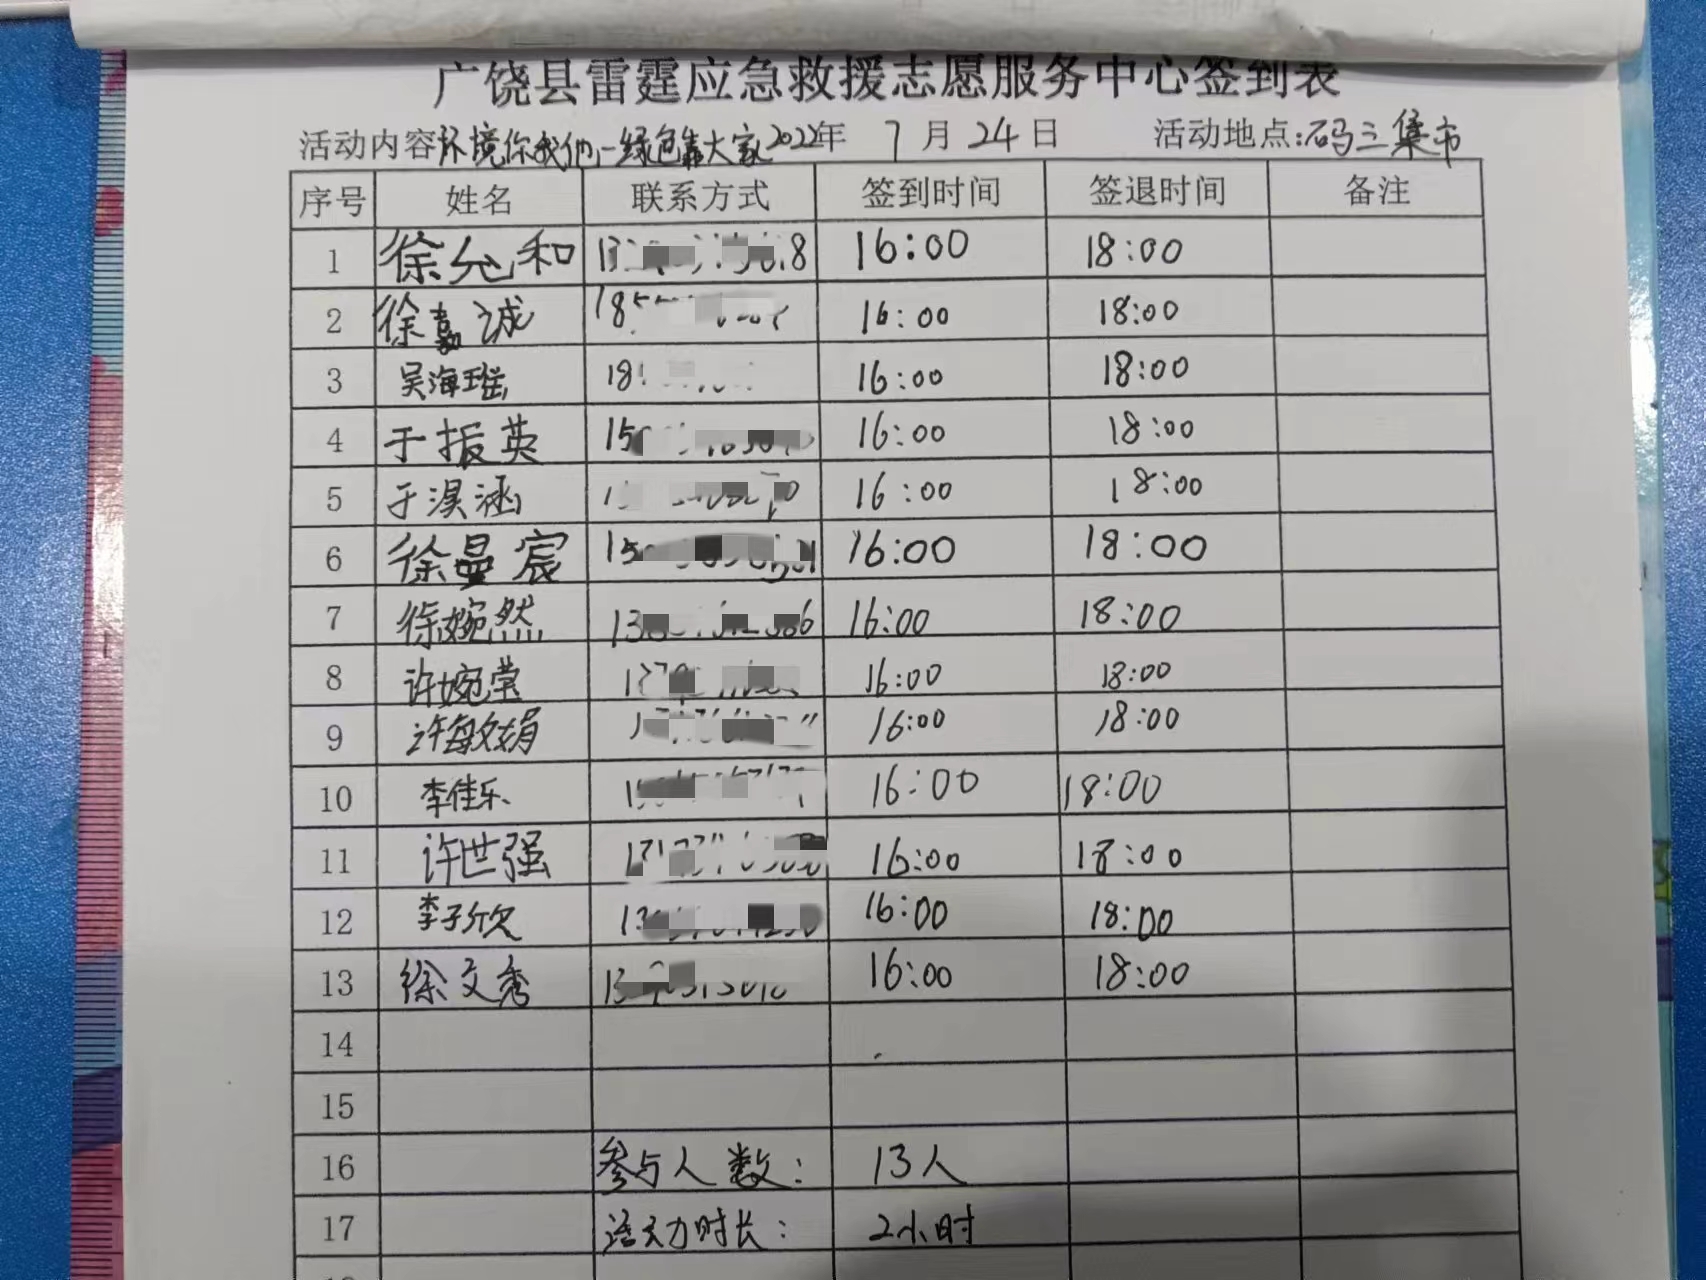 广饶县雷霆应急救援志愿服务中心签到表
活动内容环境你我他,绿色靠大家2022年 7月24日 活动地点:码三集市
序号 姓名 联系方式 签到时间 签退时间 备注
1 徐允和 16:00 18:00
2 徐嘉诚 185 16:00 18:00
3 吴海瑶 18 16:00 18:00
4 于振英 15 16:00 18:00
5 于淏涵 16:00 18:00
6 徐曼宸 15 16:00 18:00
7 徐婉然 13 16:00 18:00
8 许婉莹 16:00 18:00
9 许敏娟 16:00 18:00
10 李佳乐 16:00 18:00
11 许世强 16:00 18:00
12 李子欣 16:00 18:00
13 徐文秀 16:00 18:00
14
15
16 参与人数: 13人
17 活动时长: 2小时